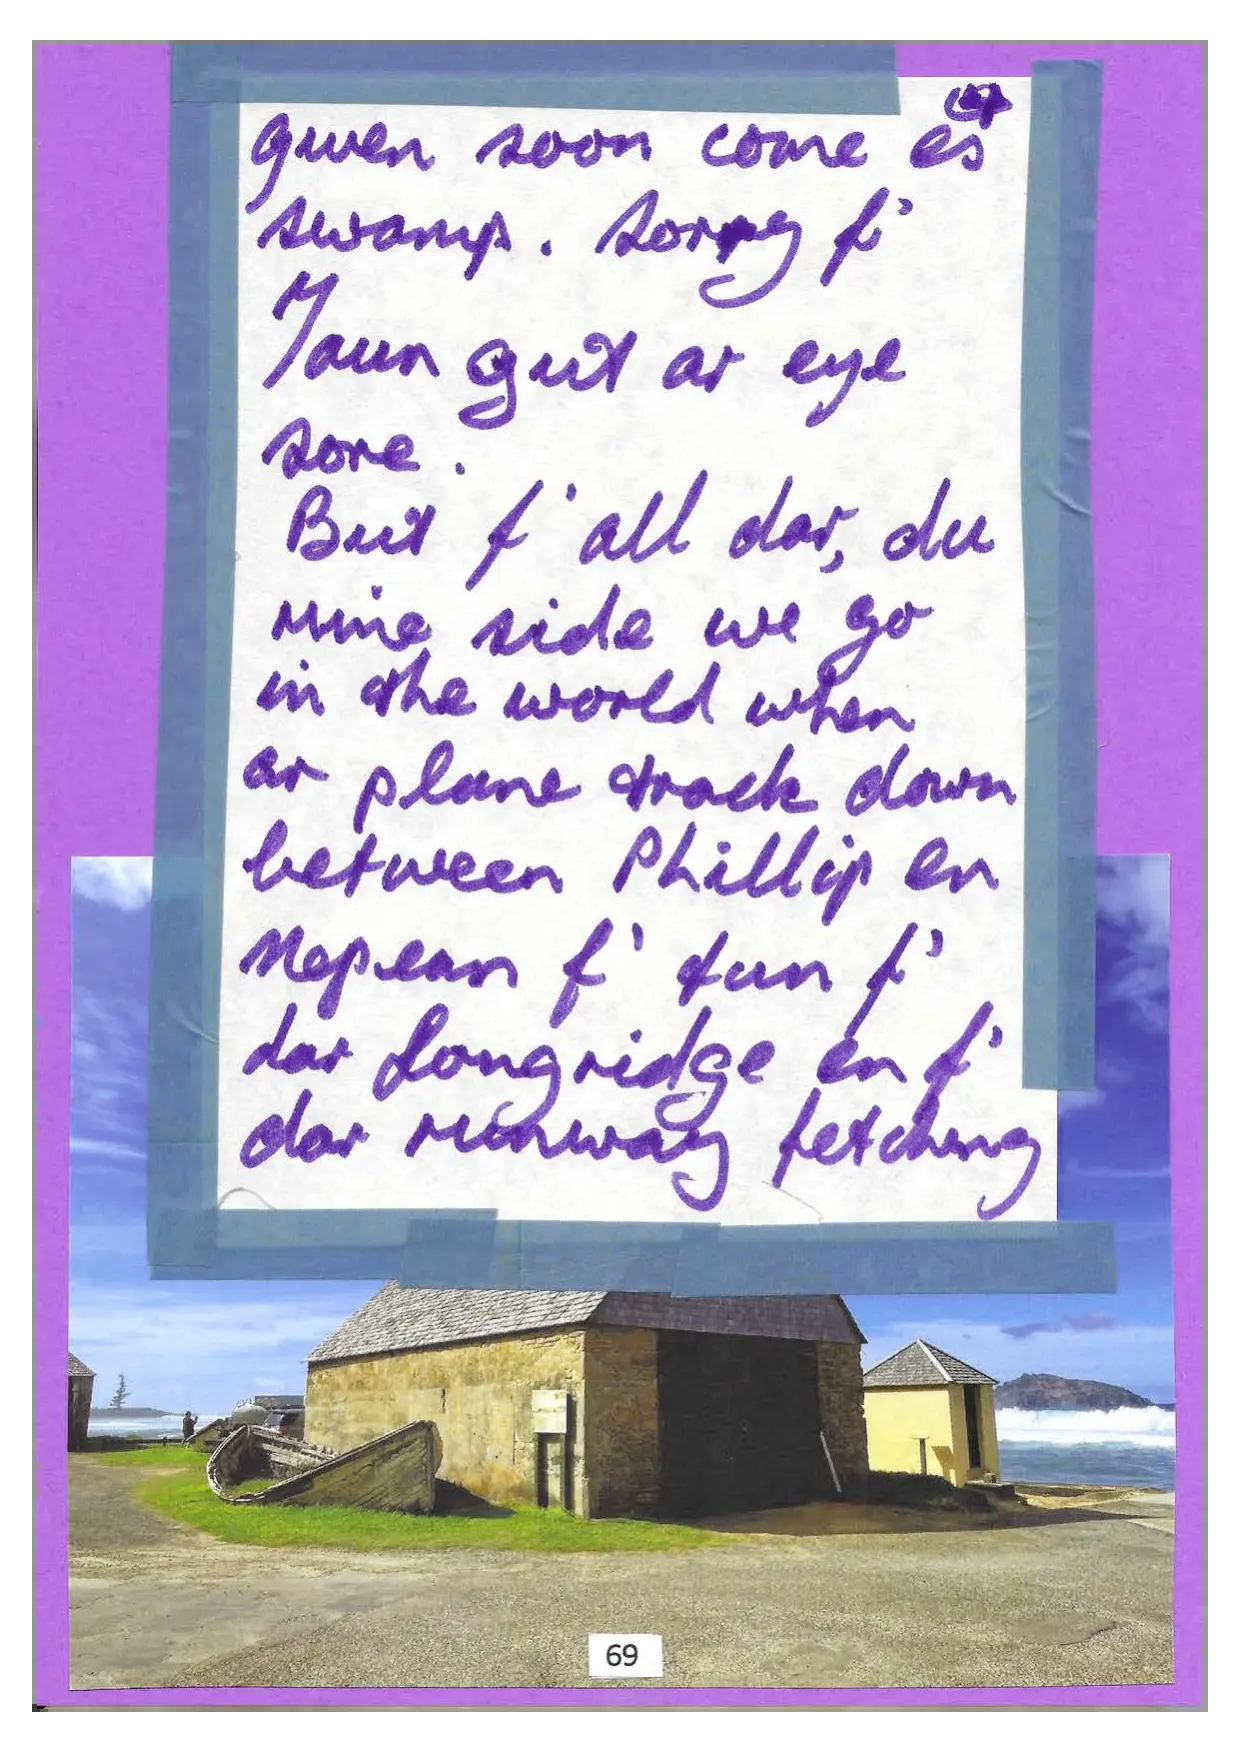 gwen soon come es
swamp. Sorrey f'
Taun gut ar eye
sore.
But f' all dar, du
mine side we go
in the world when
ar plane track down
between Phillip en
Nepean f' tun f'
dar Longridge en f'
dar runway fetching
69